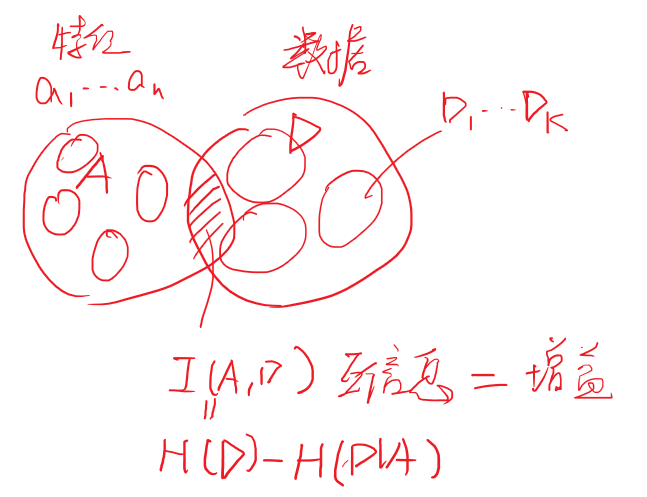 特征
a1...an
数据
D1...DK
A
D
I(A,D) 互信息=增益
=
H(D)-H(D|A)